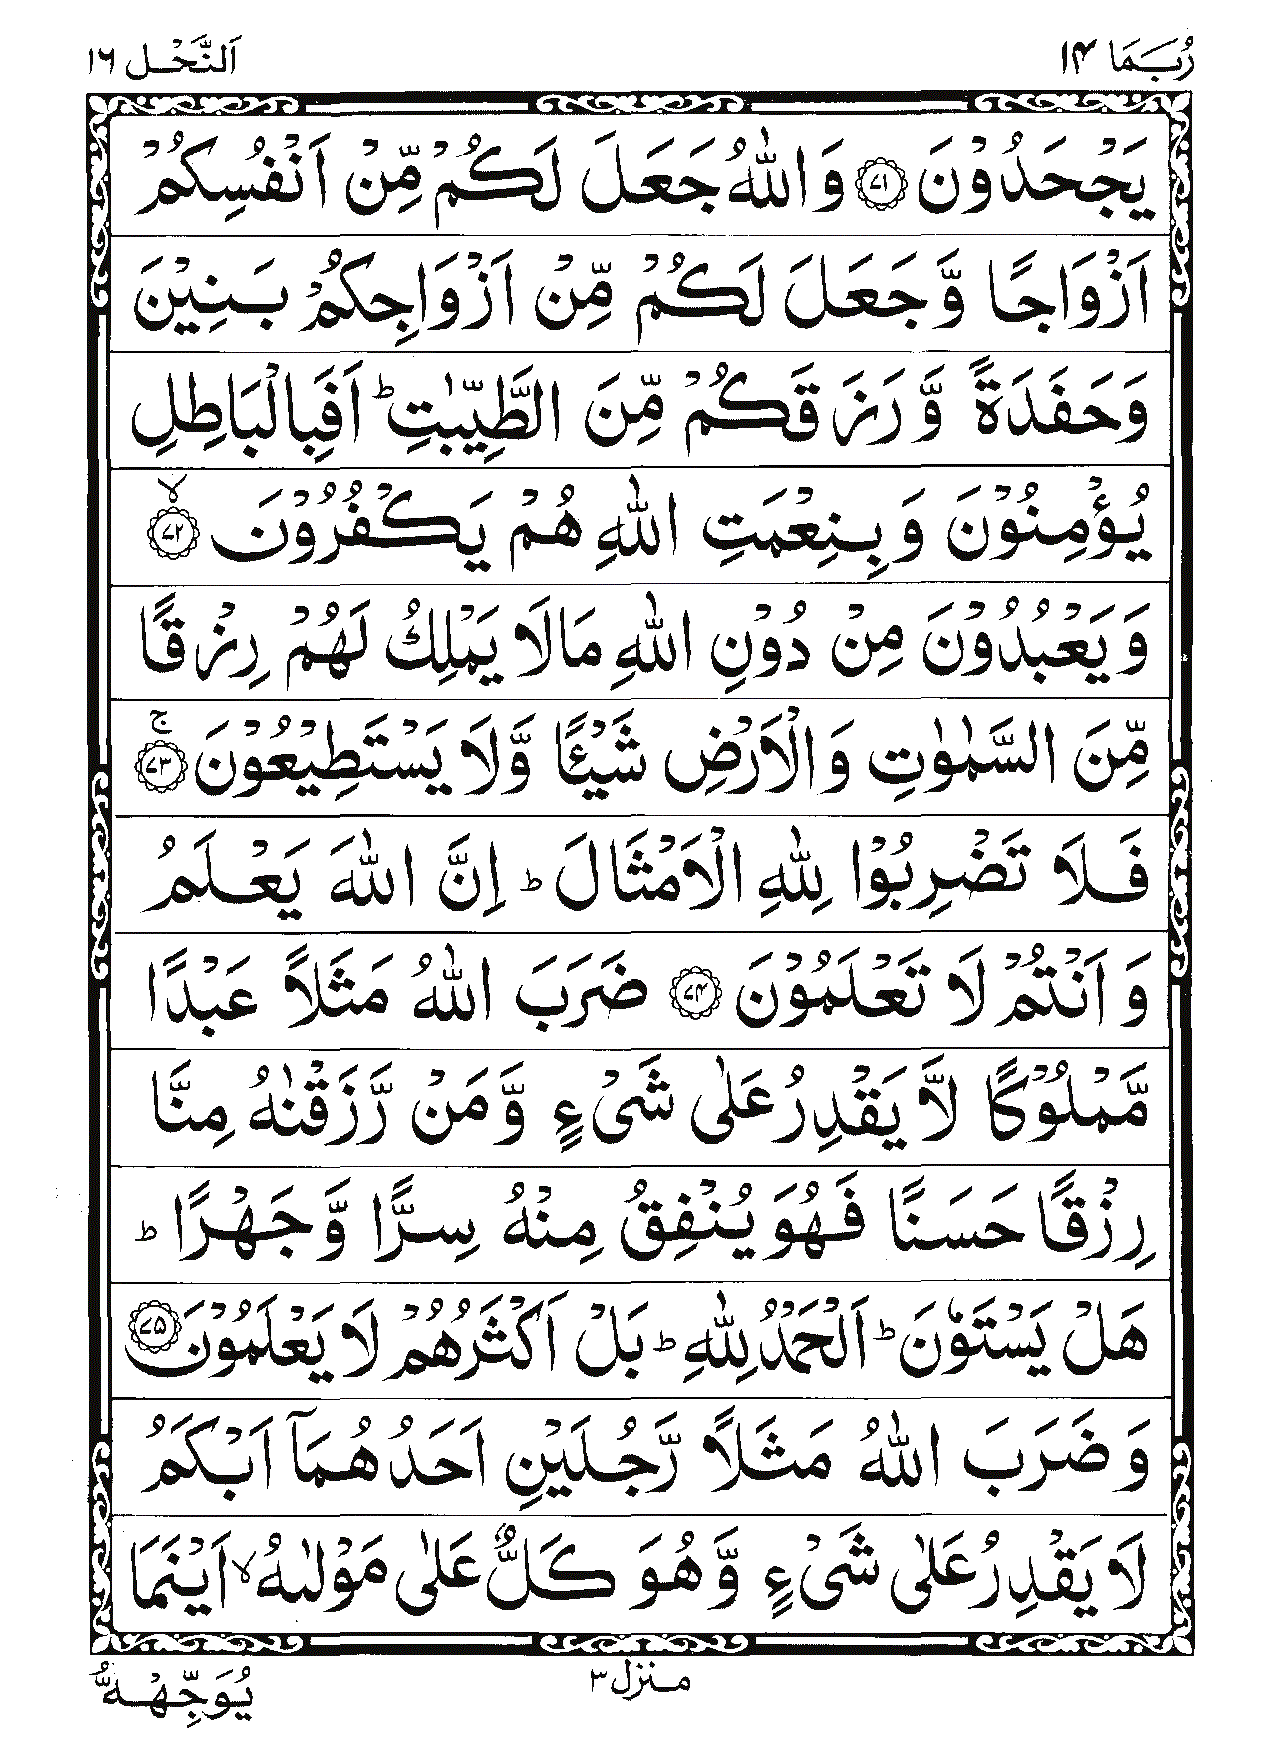 رُبَمَا ١۴
اَلنَّحْل ١٦
يَجْحَدُوْنَ ﴿٧١﴾ وَاللّٰهُ جَعَلَ لَكُمْ مِّنْ اَنْفُسِكُمْ
اَزْوَاجًا وَّجَعَلَ لَكُمْ مِّنْ اَزْوَاجِكُمْ بَنِيْنَ
وَحَفَدَةً وَّرَزَقَكُمْ مِّنَ الطَّيِّبٰتِ ؕ اَفَبِالْبَاطِلِ
يُؤْمِنُوْنَ وَبِنِعْمَتِ اللّٰهِ هُمْ يَكْفُرُوْنَ ﴿٧٢﴾ ۙ
وَيَعْبُدُوْنَ مِنْ دُوْنِ اللّٰهِ مَالَا يَمْلِكُ لَهُمْ رِزْقًا
مِّنَ السَّمٰوٰتِ وَالْاَرْضِ شَيْئًا وَّلَا يَسْتَطِيْعُوْنَ ﴿٧٣﴾ ۚ
فَلَا تَضْرِبُوْا لِلّٰهِ الْاَمْثَالَ ؕ اِنَّ اللّٰهَ يَعْلَمُ
وَاَنْتُمْ لَا تَعْلَمُوْنَ ﴿٧۴﴾ ضَرَبَ اللّٰهُ مَثَلًا عَبْدًا
مَّمْلُوْكًا لَّا يَقْدِرُ عَلٰى شَىْءٍ وَّمَنْ رَّزَقْنٰهُ مِنَّا
رِزْقًا حَسَنًا فَهُوَ يُنْفِقُ مِنْهُ سِرًّا وَّجَهْرًا ؕ
هَلْ يَسْتَوٗنَ ؕ اَلْحَمْدُ لِلّٰهِ ؕ بَلْ اَكْثَرُهُمْ لَا يَعْلَمُوْنَ ﴿٧۵﴾
وَضَرَبَ اللّٰهُ مَثَلًا رَّجُلَيْنِ اَحَدُهُمَآ اَبْكَمُ
لَا يَقْدِرُ عَلٰى شَىْءٍ وَّهُوَ كَلٌّ عَلٰى مَوْلٰىهُ ۙ اَيْنَمَا
منزل ٣
يُوَجِّهْهُّ